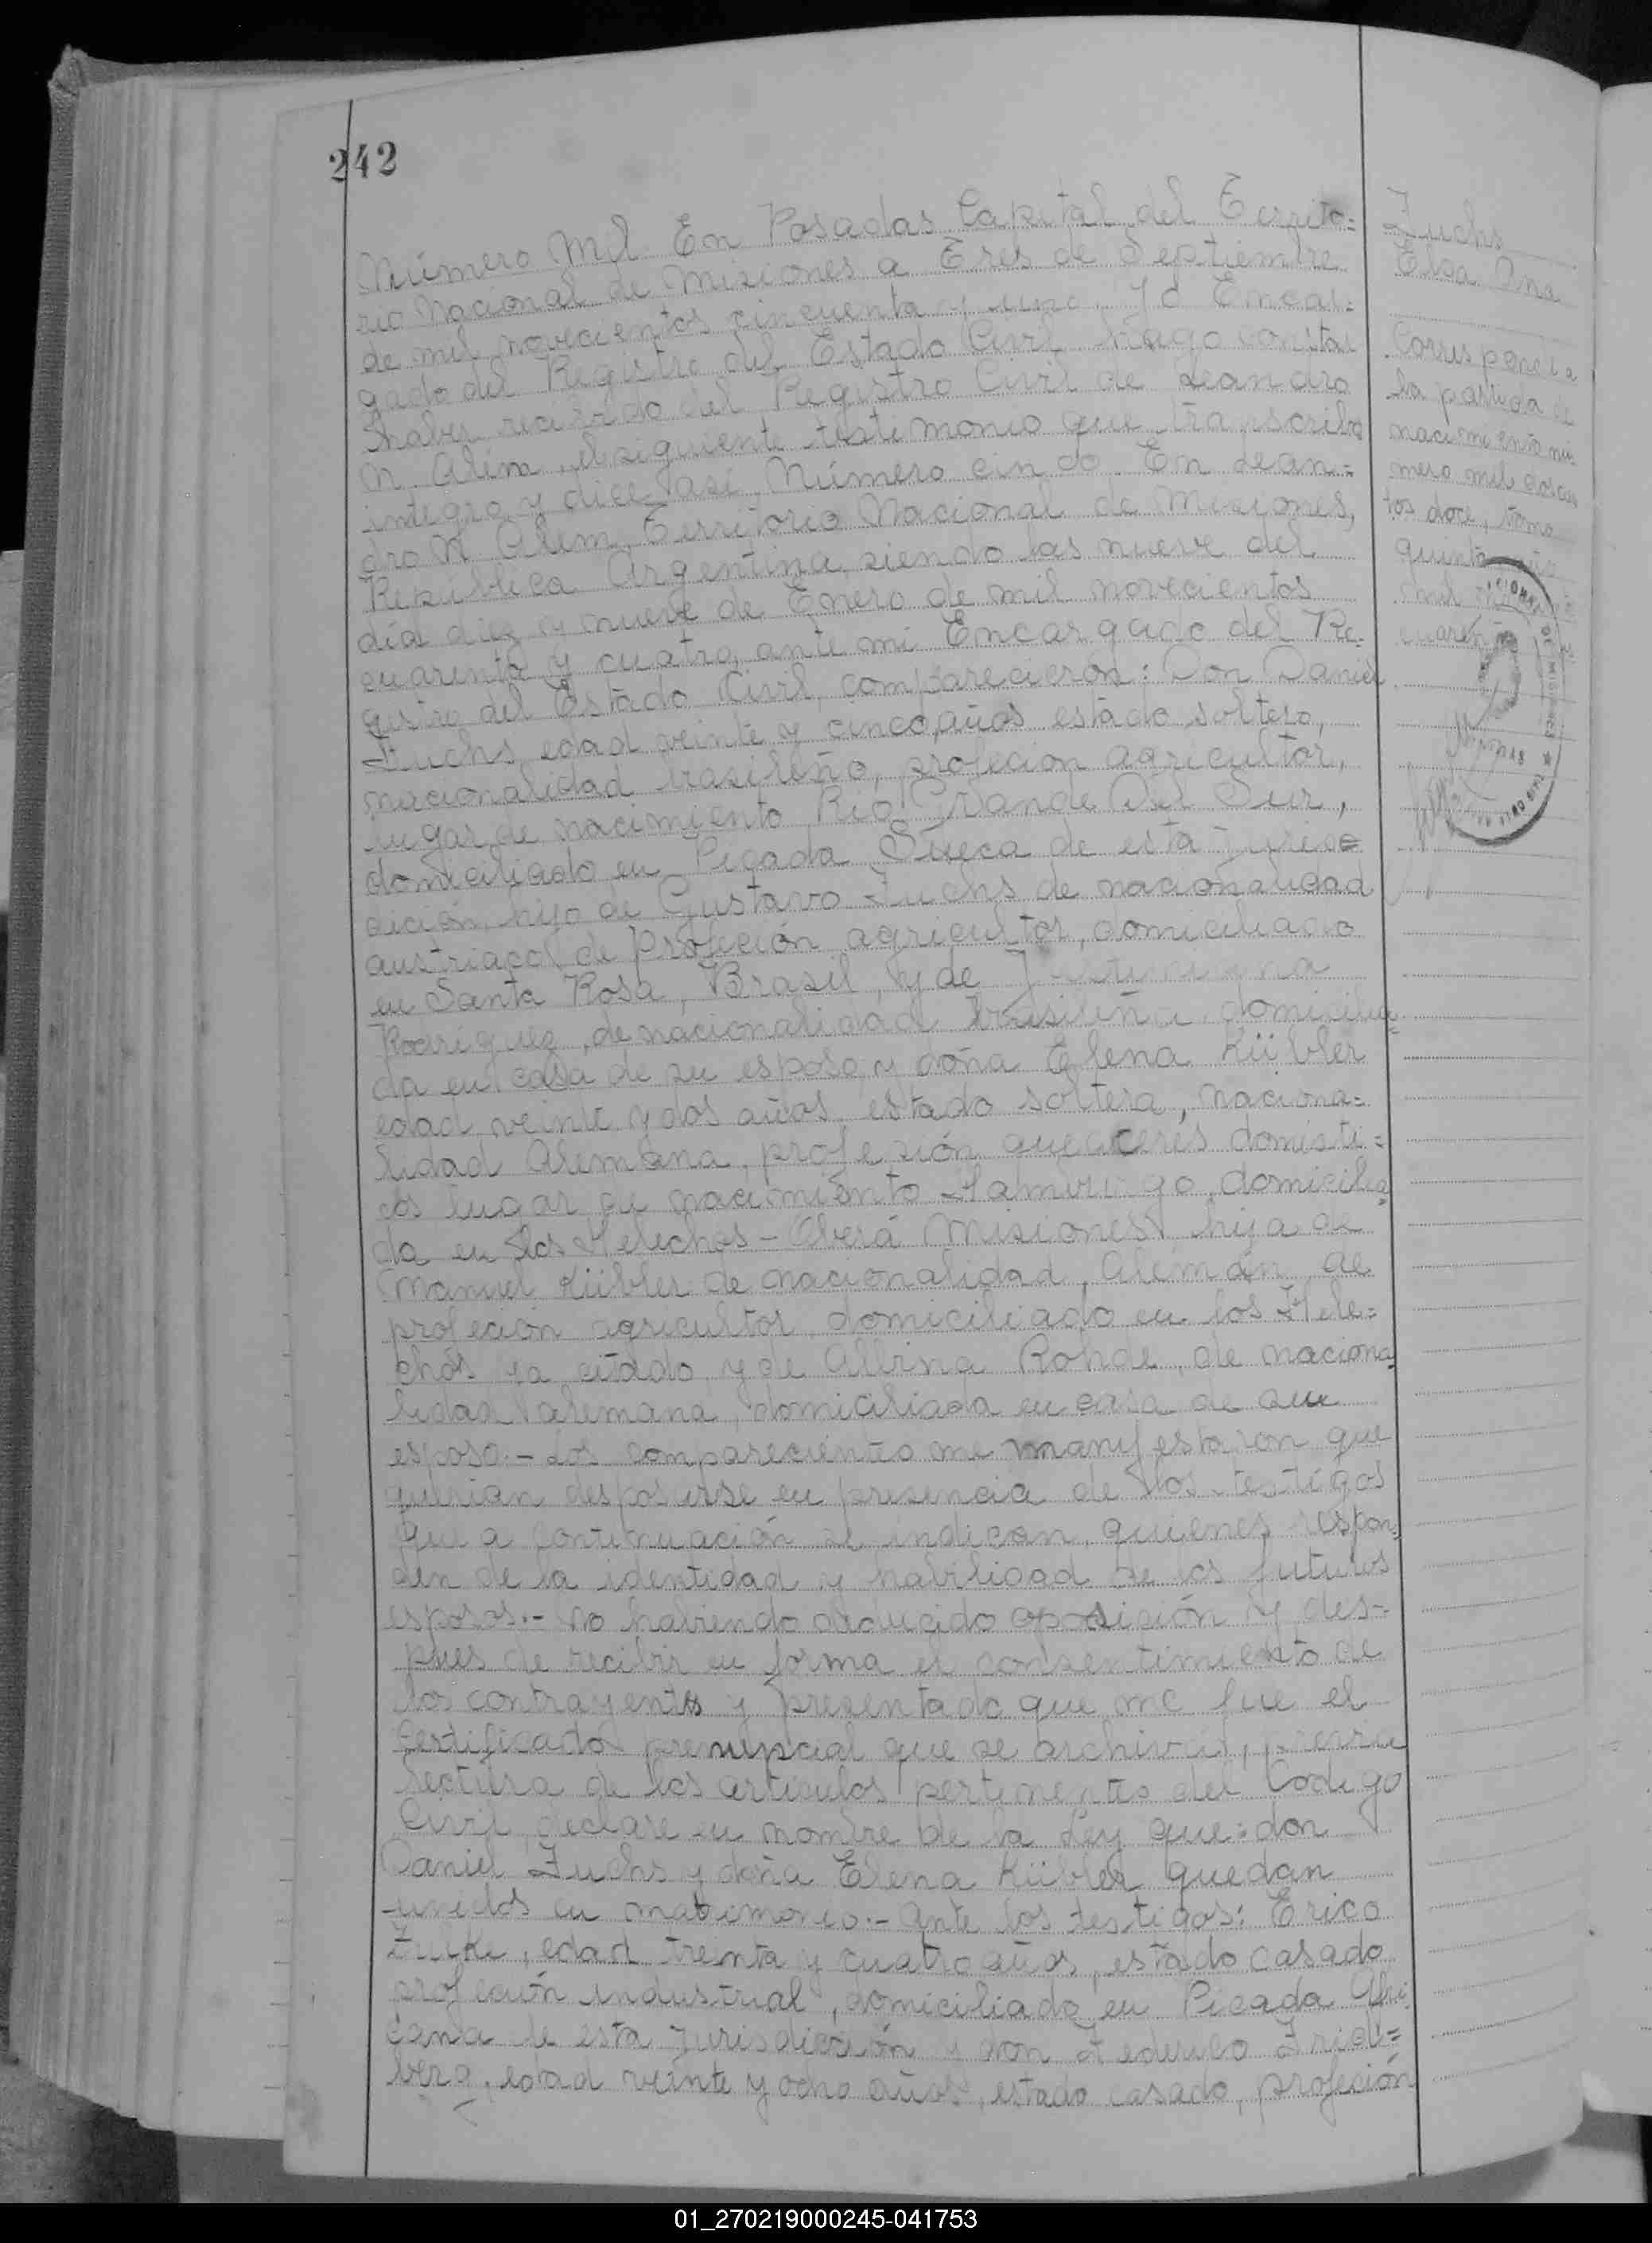 242
Número Mil En Posadas Capital del Territo=
rio Nacional de Misiones a Tres de Septiembre
de mil novecientos cincuenta y uno. Yo Encar=
gado del Registro del Estado Civil hago constar
haber recibido del Registro Civil de Leandro
N. Além, el siguiente testimonio que transcribo
integro y dice así Número cinco En Lean=
dro N. Alem, Territorio Nacional de Misiones,
República Argentina, siendo las nueve del
día diez y nueve de Enero de mil novecientos
cuarenta y cuatro, ante mi Encargado del Re=
gistro del Estado Civil, comparecieron: Don Daniel
Fuchs, edad veinte y cinco años estado soltero,
nacionalidad brasileño, profeción agricultor,
lugar de nacimiento Rio Grande Del Sur,
domiciliado en Picada Sueca de esta juris=
dición, hijo de Gustavo Fuchs de nacionalidad
austriaco de profeción agricultor, domiciliado
en Santa Rosa, Brasil, y de
Rodriguez, de nacionalidad brasileña, domicilia=
da en casa de su esposo y doña Elena Kübler
edad veinte y dos años, estado soltera, naciona=
lidad Alemana, profesión quehaceres domésti=
cos lugar de nacimiento Hamburgo, domicilia=
da en los Helechos - Oberá Misiones hija de
Manuel Kübler de nacionalidad, Alemán, de
profeción agricultor, domiciliado en los Hele=
chos ya citado, y de Albina Rohde, de naciona=
lidad alemana, domiciliada en casa de su
esposo.- Los comparecientes me manifestaron que
querian desposarse en presencia de los testigos
que a continuación se indican, quienes respon=
den de la identidad y habilidad de los futuros
esposos.- No habiendo deducido oposición y des-
pues de recibir en forma el consentimiento de
los contrayentes y presentado que me fue el
certificado prenupcial que se archiva, previa
lectura de los articulos pertinentes del Codigo
Civil, declare en nombre de la Ley que: don
Daniel Fuchs y doña Elena Kübler quedan
unidos en matrimonio.- Ante los testigos: Erico
edad treinta y cuatro años, estado casado
profeción industrial, domiciliado en Picada
de esta jurisdicción y don Federico
edad veinte y ocho años, estado casado, profeción
Fuchs
Elsa Ana
Corresponde a
la partida de
nacimiento nú
mero mil doscien
tos doce, tomo
quinto
mil
01_270219000245-041753